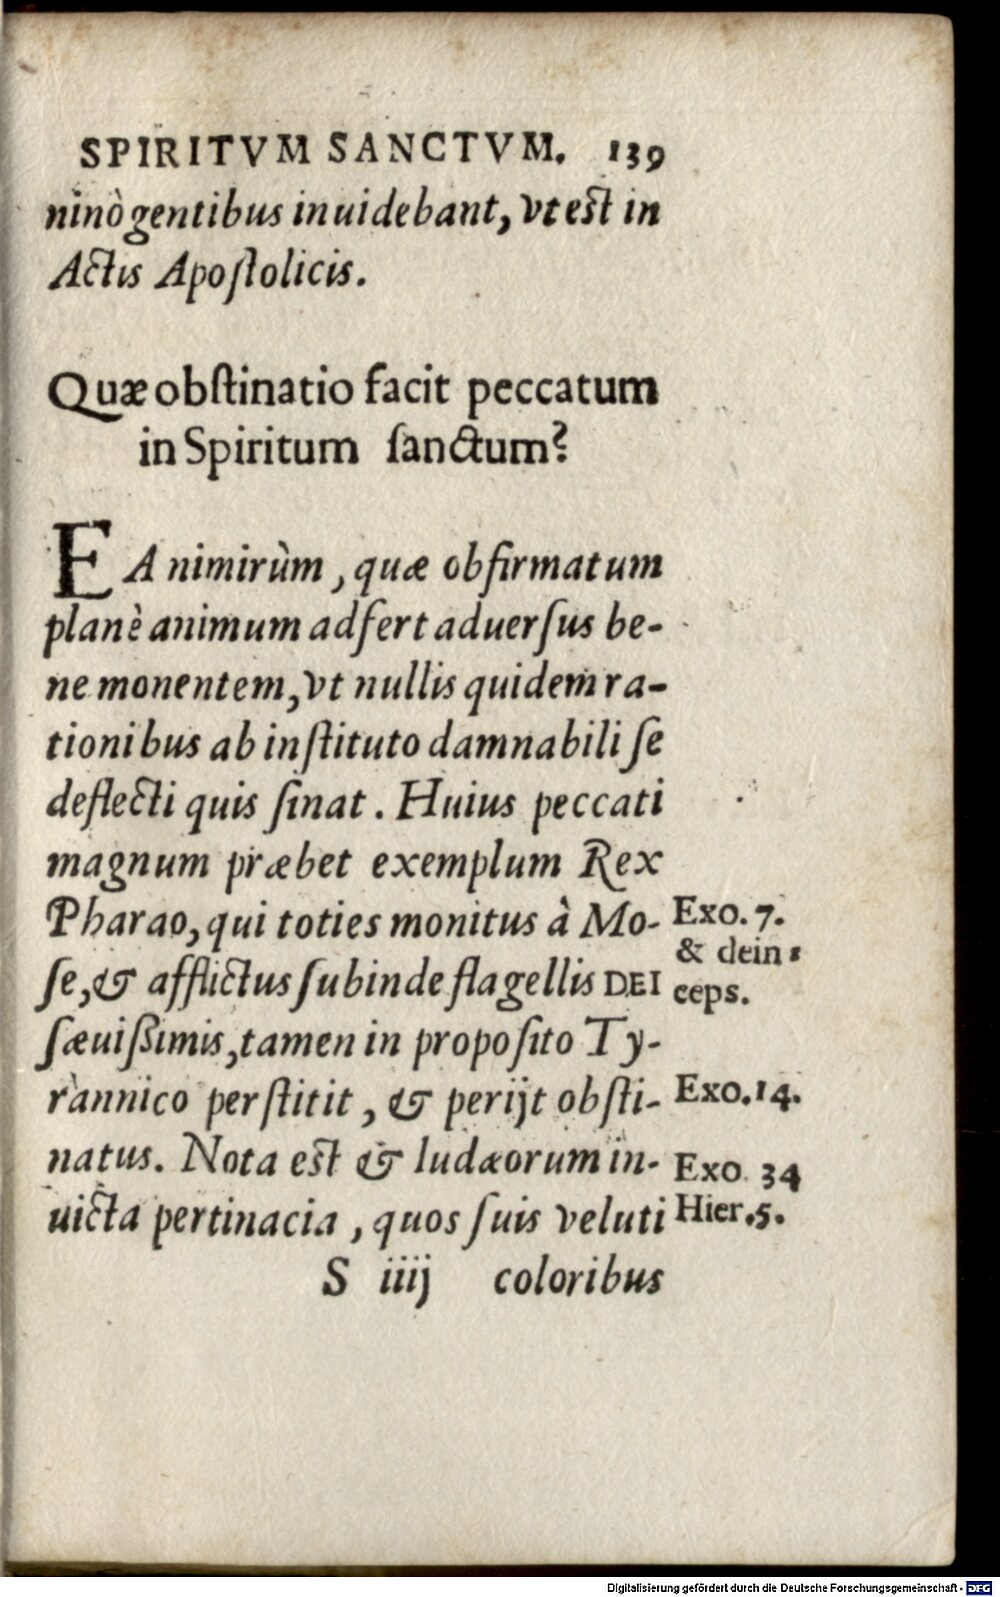 SPIRITVM SANCTVM. 139
ninò gentibus inuidebant, vt est in
Actis Apoſtolicis.
Quæ obſtinatio facit peccatum
in Spiritum ſanctum?
EA nimirùm, quæ obfirmatum
planè animum adfert aduerſus be-
ne monentem, vt nullis quidem ra-
tionibus ab inſtituto damnabili ſe
deflecti quis ſinat. Huius peccati
magnum præbet exemplum Rex
Pharao, qui toties monitus à Mo-
ſe, & afflictus ſubinde flagellis DEI
ſæuißimis, tamen in propoſito Ty-
rannico perſtitit, & perijt obſti-
natus. Nota est & Iudæorum in-
uicta pertinacia, quos ſuis veluti
S iiij coloribus
Exo. 7.
& dein-
ceps.
Exo. 14.
Exo. 34
Hier. 5.
Digitalisierung gefördert durch die Deutsche Forschungsgemeinschaft - DFG